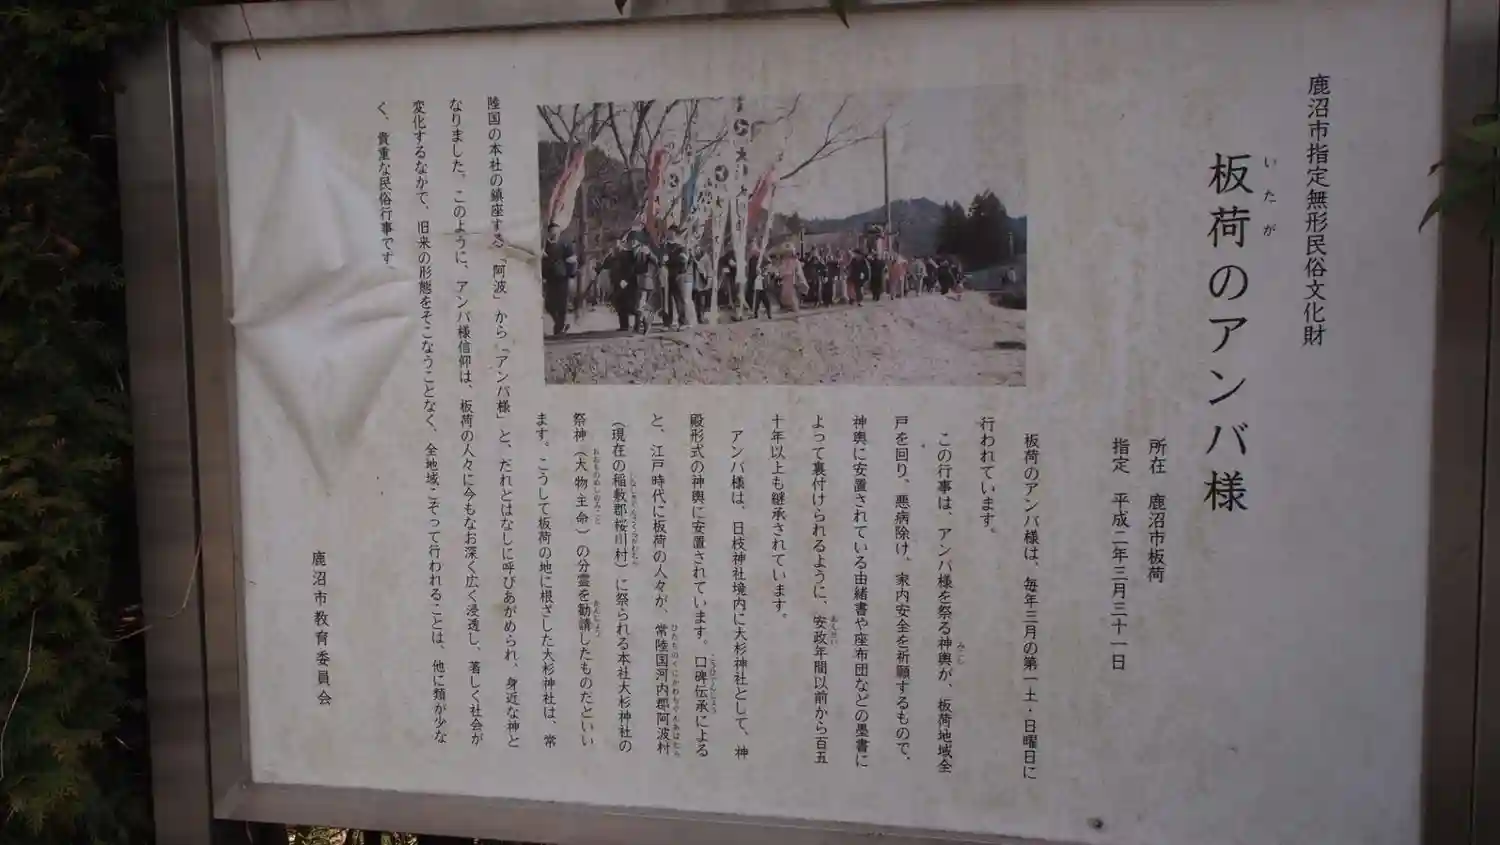 鹿沼市指定無形民俗文化財
いたが
板荷のアンバ様
所在 鹿沼市板荷
指定 平成二年三月三十一日
板荷のアンバ様は、毎年三月の第一土・日曜日に
行われています。
みこし
この行事は、アンバ様を祭る神輿が、板荷地域全
戸を回り、悪病除け、家内安全を祈願するもので、
神輿に安置されている由緒書や座布団などの墨書に
あんせい
よって裏付けられるように、安政年間以前から百五
十年以上も継承されています。
アンバ様は、日枝神社境内に大杉神社として、神
こうひでんしょう
殿形式の神輿に安置されています。口碑伝承による
ひたちのくにかわちぐんあばむら
と、江戸時代に板荷の人々が、常陸国河内郡阿波村
いなしきぐんさくらがわむら
(現在の稲敷郡桜川村)に祭られる本社大杉神社の
おおものぬしのみこと かんじょう
祭神(大物主命)の分霊を勧請したものだといい
ます。こうして板荷の地に根ざした大杉神社は、常
陸国の本社の鎮座する「阿波」から「アンバ様」と、だれとはなしに呼びあがめられ、身近な神と
なりました。このように、アンバ様信仰は、板荷の人々に今もなお深く広く浸透し、著しく社会が
変化するなかで、旧来の形態をそこなうことなく、全地域こぞって行われることは、他に類が少な
く、貴重な民俗行事です。
鹿沼市教育委員会